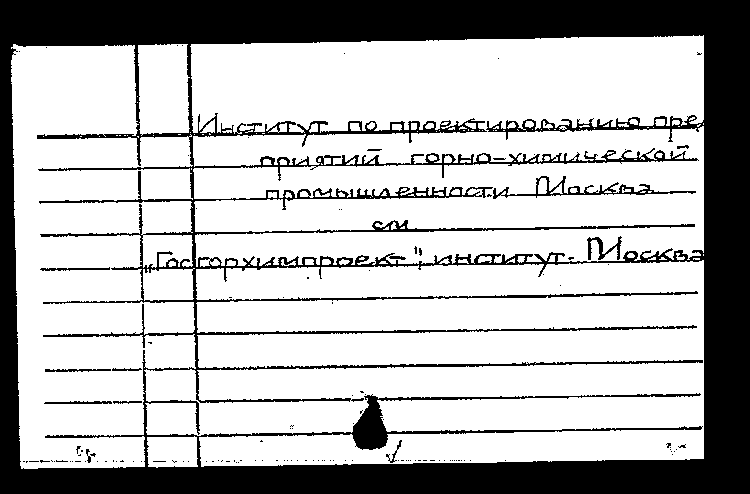 Институт по проектированию пре
приятий горно-химической
промышленности Москва
см
"Госгорхимпроект", институт. Москва